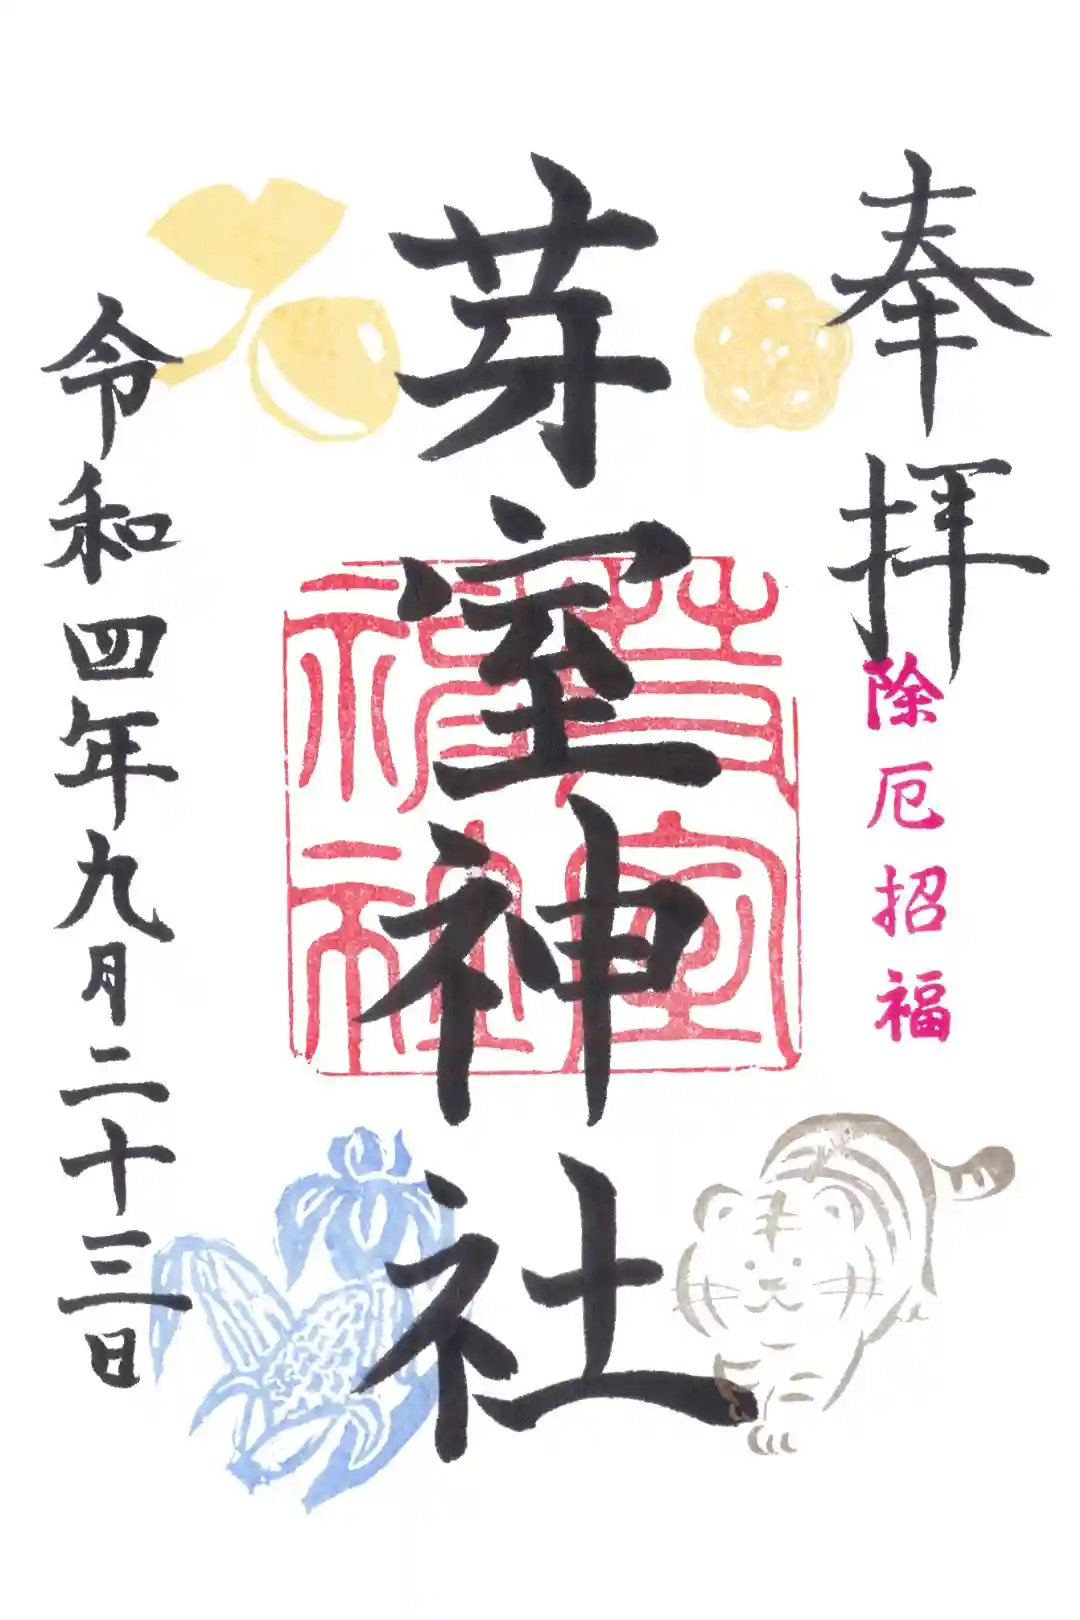 奉拝
除厄招福
芽室神社
芽室神社
令和四年九月二十三日